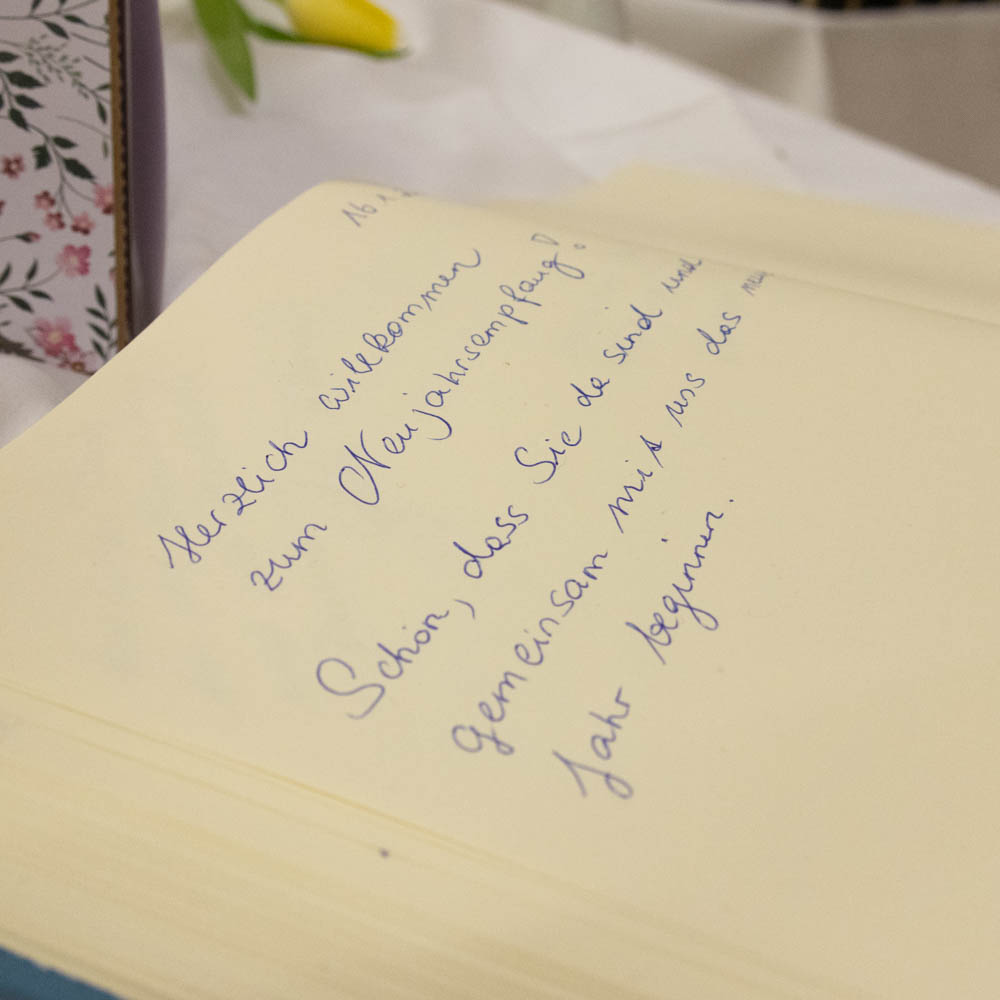 16.1
Herzlich willkommen
zum Neujahrsempfang!
Schön, dass Sie da sind und
gemeinsam mit uns das neue
Jahr beginnen.